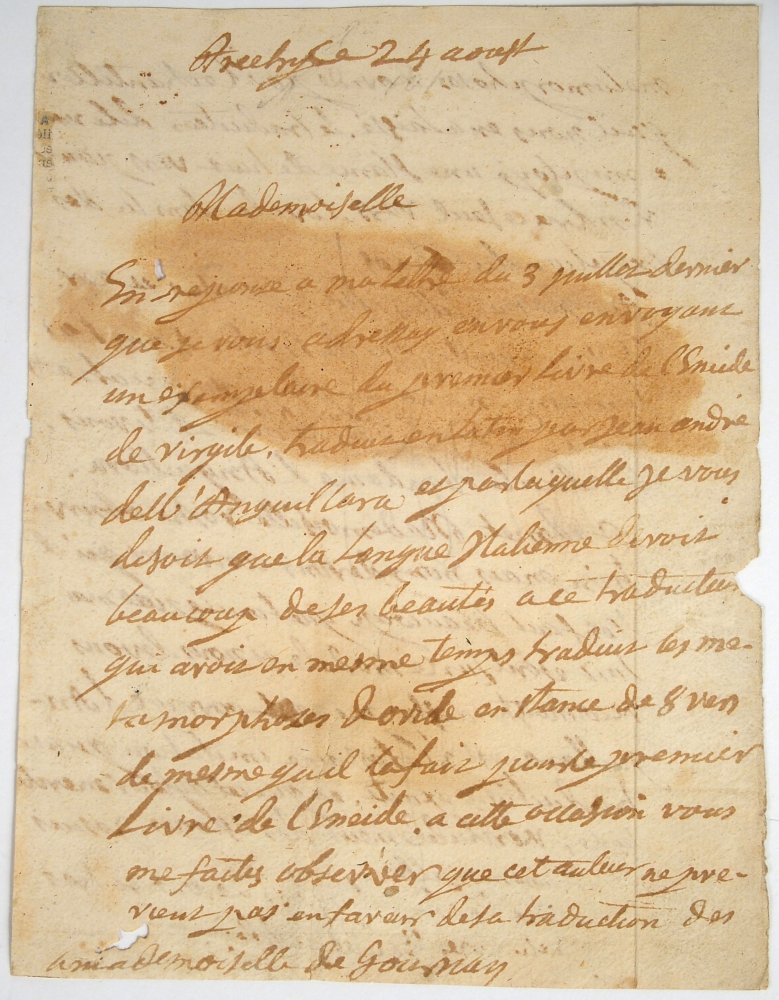 24 aoust
Mademoiselle
En reponse a ma lettre du 3 juillet dernier
que je vous adressay en vous envoyant
un exemplaire du premier Livre de l'Eneide
de virgile, traduit en par jean andré
dell'Anguillara et par laquelle je vous
disoit que la Langue Italienne devoit
beaucoup de ses beautés a ce traducteur
qui avoit en mesme temps traduit les me-
tamorphoses d'ovide en stance de 8 vers
de mesme qu'il la fait pour le premier
Livre de l'Eneide. a cette occasion vous
me faites observer que cet auteur ne pre-
vient pas en faveur de sa traduction des
a mademoiselle de Gournay